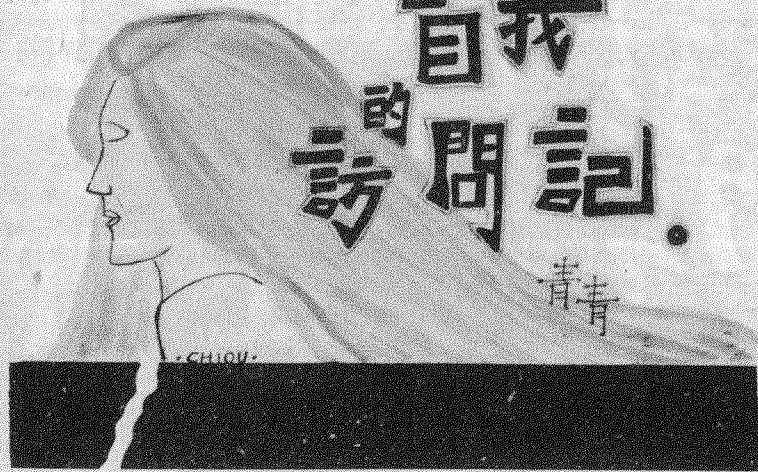 自我
的
訪問記。
青青
·CHIOU·